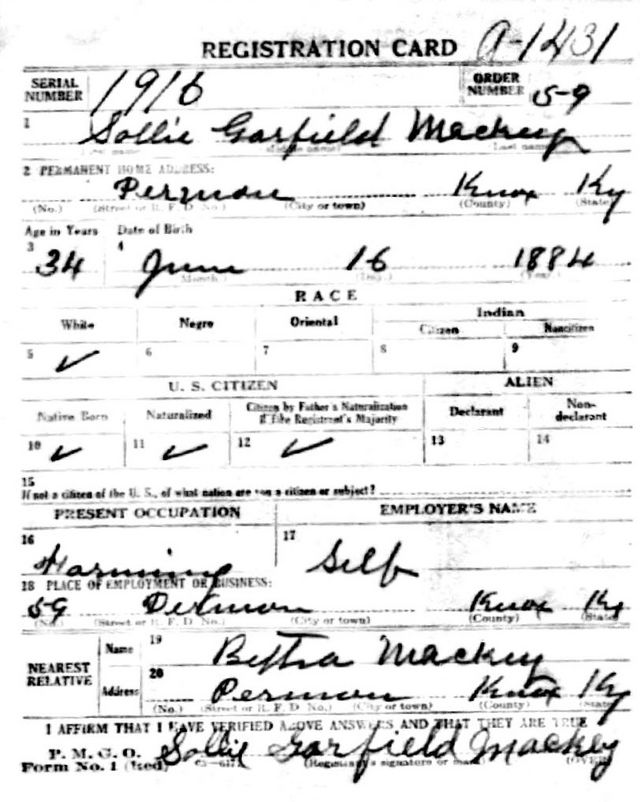 REGISTRATION CARD a-1431
SERIAL NUMBER 1916 ORDER NUMBER 59
1 Sollie Garfield Mackey
(Middle name) (Last name)
2 PERMANENT HOME ADDRESS:
Permon Knox Ky
(No.) (Street or R. F. D. No.) (City or town) (County) (State)
Age in Years Date of Birth
3 34 4 June 16 1884
(Month.) (Day.) (Year.)
RACE
White Negro Oriental Indian
Citizen Noncitizen
5 ✓ 6 7 8 9
U. S. CITIZEN ALIEN
Native Born Naturalized Citizen by Father's Naturalization Declarant Non-
if the Registrant's Majority declarant
10 ✓ 11 ✓ 12 ✓ 13 14
15
If not a citizen of the U. S., of what nation are you a citizen or subject?
PRESENT OCCUPATION EMPLOYER'S NAME
16 17
Farming Self
18 PLACE OF EMPLOYMENT OR BUSINESS:
59 Knox Ky
(No.) (Street or R. F. D. No.) (City or town) (County) (State)
NEAREST RELATIVE
Name 19 Mackey
Address 20 Permon Knox Ky
(No.) (Street or R. F. D. No.) (City or town) (County) (State)
I AFFIRM THAT I HAVE VERIFIED ABOVE ANSWERS AND THAT THEY ARE TRUE
P. M. G. O.
Form No. 1 (Red) Sollie Garfield Mackey
(Registrant's signature or mark) (OVER)